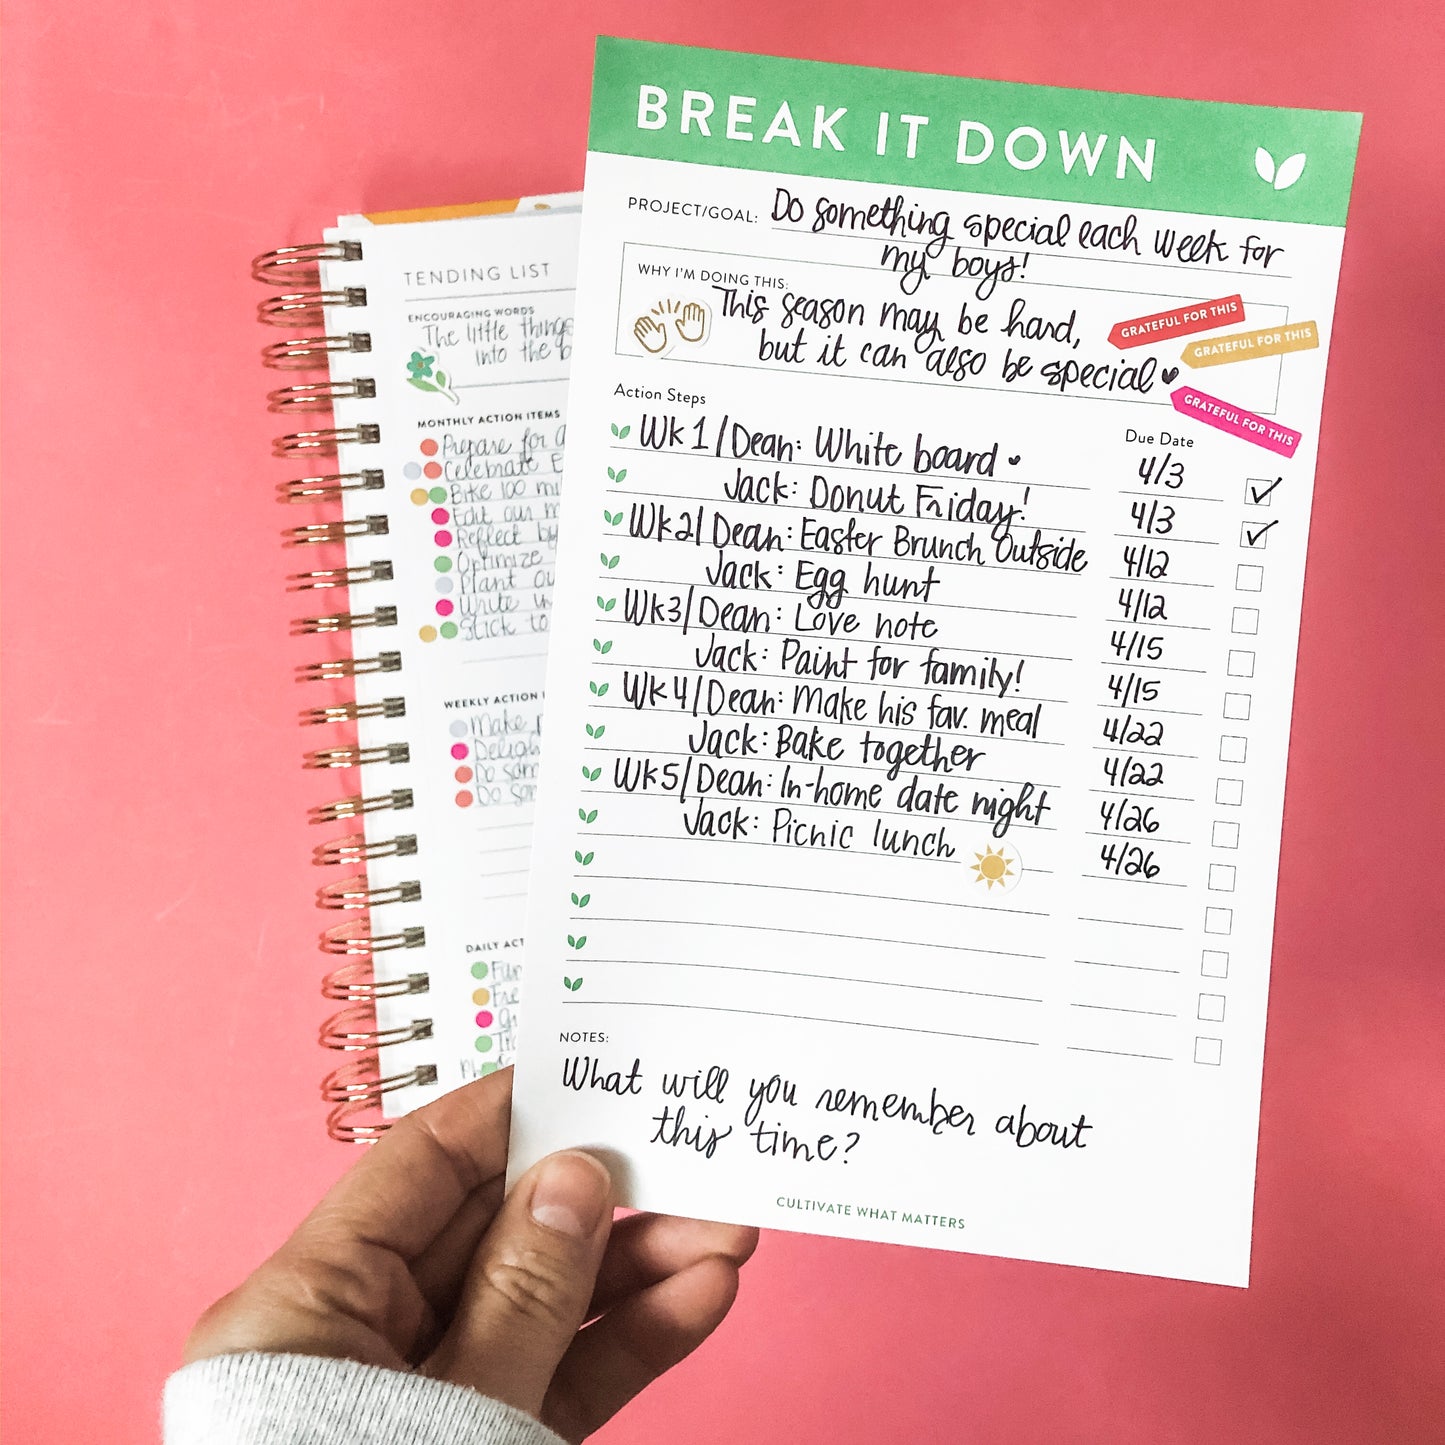 BREAK IT DOWN
PROJECT/GOAL: Do something special each week for
my boys!
WHY I'M DOING THIS:
This season may be hard,
but it can also be special
GRATEFUL FOR THIS
GRATEFUL FOR THIS
GRATEFUL FOR THIS
Action Steps
Due Date
Wk 1/Dean: White board 4/3
Jack: Donut Friday! 4/3
Wk2/Dean: Easter Brunch Outside 4/12
Jack: Egg hunt 4/12
Wk3/Dean: Love note 4/15
Jack: Paint for family! 4/15
Wk4/Dean: Make his fav. meal 4/22
Jack: Bake together 4/22
Wk5/Dean: In-home date night 4/26
Jack: Picnic lunch 4/26
NOTES:
What will you remember about
this time?
CULTIVATE WHAT MATTERS
TENDING LIST
ENCOURAGING WORDS
The little things
into the
MONTHLY ACTION ITEMS
Prepare for
Celebrate
Bike 100
Edit our
Reflect
Optimize
Plant
Write
Stick to
WEEKLY ACTION
Make
Do
Do
DAILY